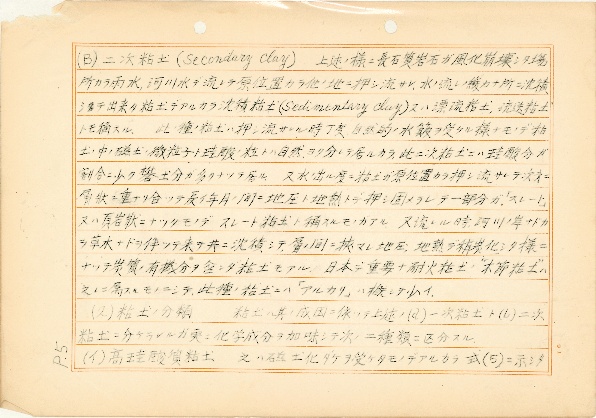 (B) 二次粘土 (Secondary Clay) 上述ノ様ニ長石質岩石ガ風化崩壊シタ場
所カラ雨水,河川水デ流シテ原位置カラ他ノ地ニ押シ流サレ,水ノ流レノ緩カナ所ニ沈積
シテ出来タ粘土デアルカラ沈積粘土(Sedimentary Clay)又ハ漂流粘土,流送粘土
トモ稱スル. 此ノ種ノ粘土ハ押シ流サレル時丁度自然的ノ水簸ヲ受ケル様ナモノデ粘
土ノ中ノ粘土ノ微粒子ト珪酸ノ粒トハ自然ニワリ分レテ居ルカラ,此ノ二次粘土ニハ珪酸分ガ
割合ニ少ク礬土分ガ多クナッテ居ル. 又水出ル度ニ粘土ガ原位置カラ押シ流サレテ次々ニ
層状ニ重ナリ合ッテ長イ年月ノ間ニ地圧ト地熱トデ押シ固メラレテ一部分ガ「スレート」
又ハ頁岩状ニナッタモノデ スレート粘土ト稱スルモノガアル 又流レル時,河川ノ岸ナドカ
ラ草木ナドヲ伴ッテ来テ共ニ沈積シテ,層ノ間ニ挟マレ地圧,地熱デ稍炭化シタ様ニ
ナッテ炭質ノ有機分ヲ含ンダ粘土モアル. 日本デ重要ナ耐火粘土ノ"木節粘土"ハ
之ニ属スルモノニシテ,此種ノ粘土ニハ「アルカリ」ハ極ニ少イ.
(2) 粘土ノ分類 粘土ハ其ノ成因ニ依ッテ上述ノ(a)一次粘土ト(b)二次
粘土ニ分ケラレルガ更ニ化学成分ヲ加味シテ次ノ二種類ニ区分スル.
(イ) 高珪酸質粘土 之ハ磁土化ダケヲ受ケタモノデアルカラ式(5)ニ示シタ
P5